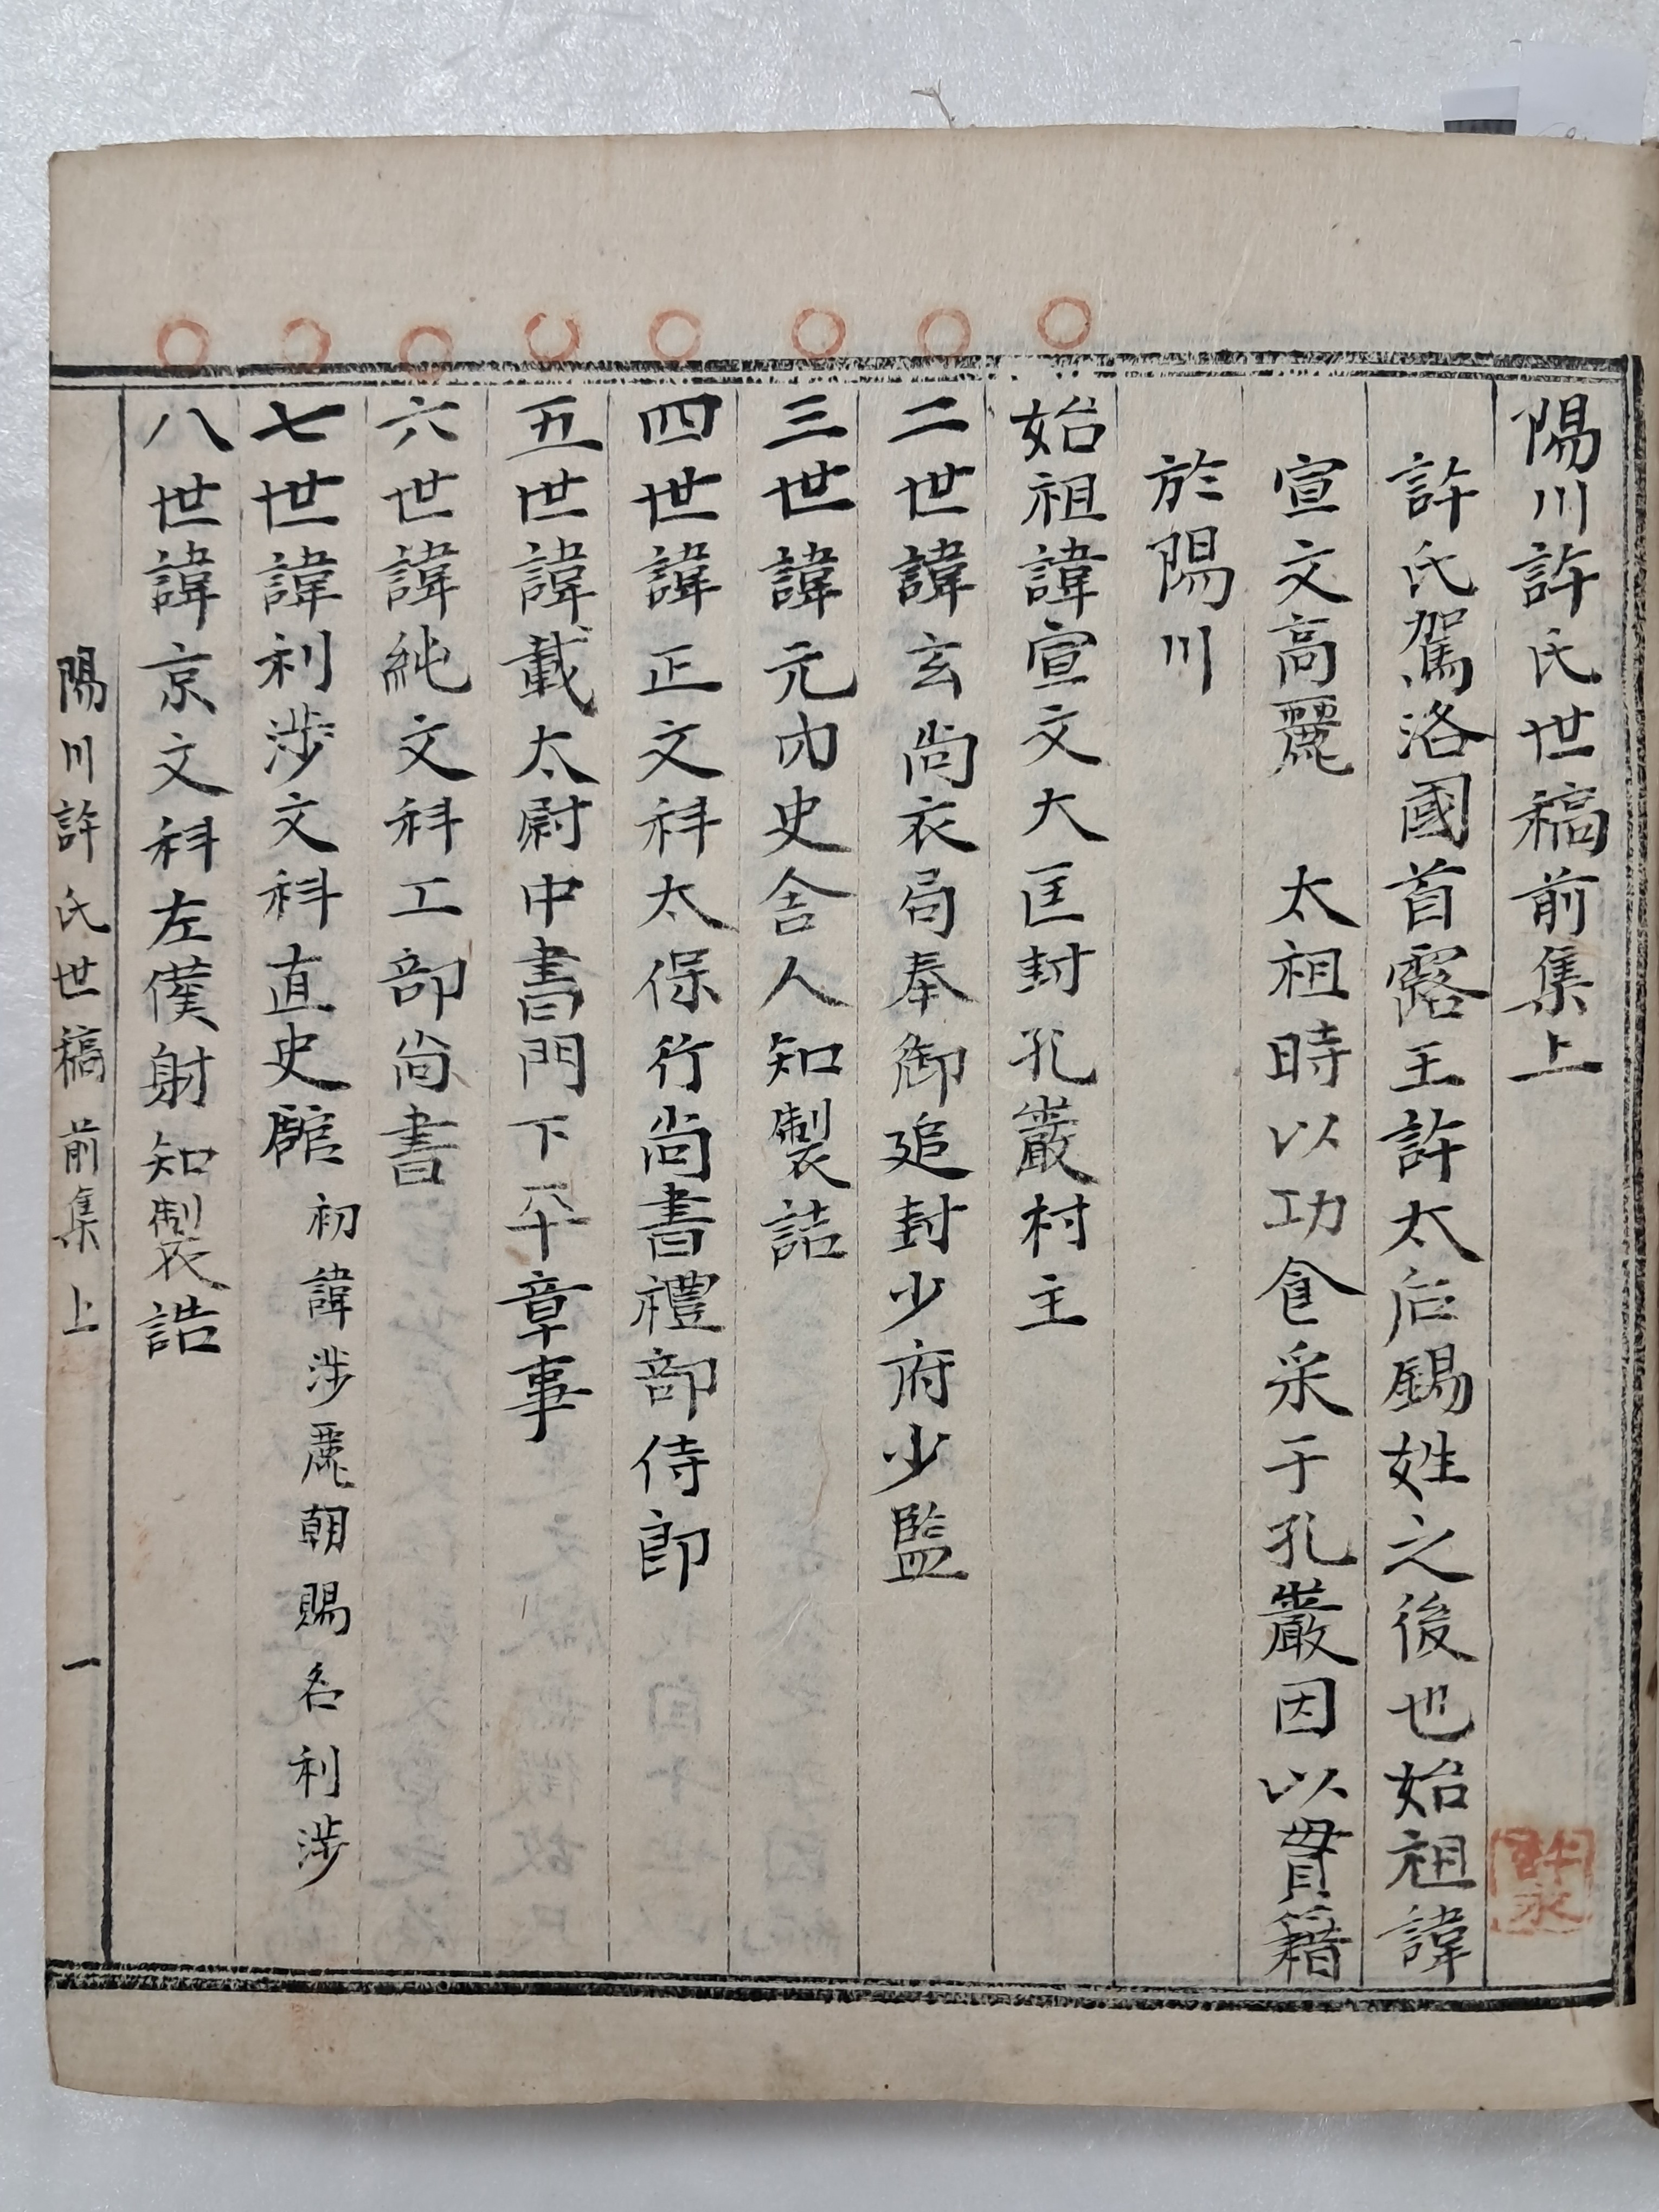 陽川許氏世稿前集上
許氏駕洛國首露王許太后錫姓之後也始祖諱
宣文高麗 太祖時以功食采于孔巖因以貫籍
於陽川
始祖諱宣文大匡封孔巖村主
二世諱玄尚衣局奉御追封少府少監
三世諱元內史舍人知製誥
四世諱正文科太保行尚書禮部侍郎
五世諱載太尉中書門下平章事
六世諱純文科工部尚書
七世諱利涉文科直史館 初諱涉麗朝賜名利涉
八世諱京文科左僕射知製誥
陽川許氏世稿 前集上 一
許
永